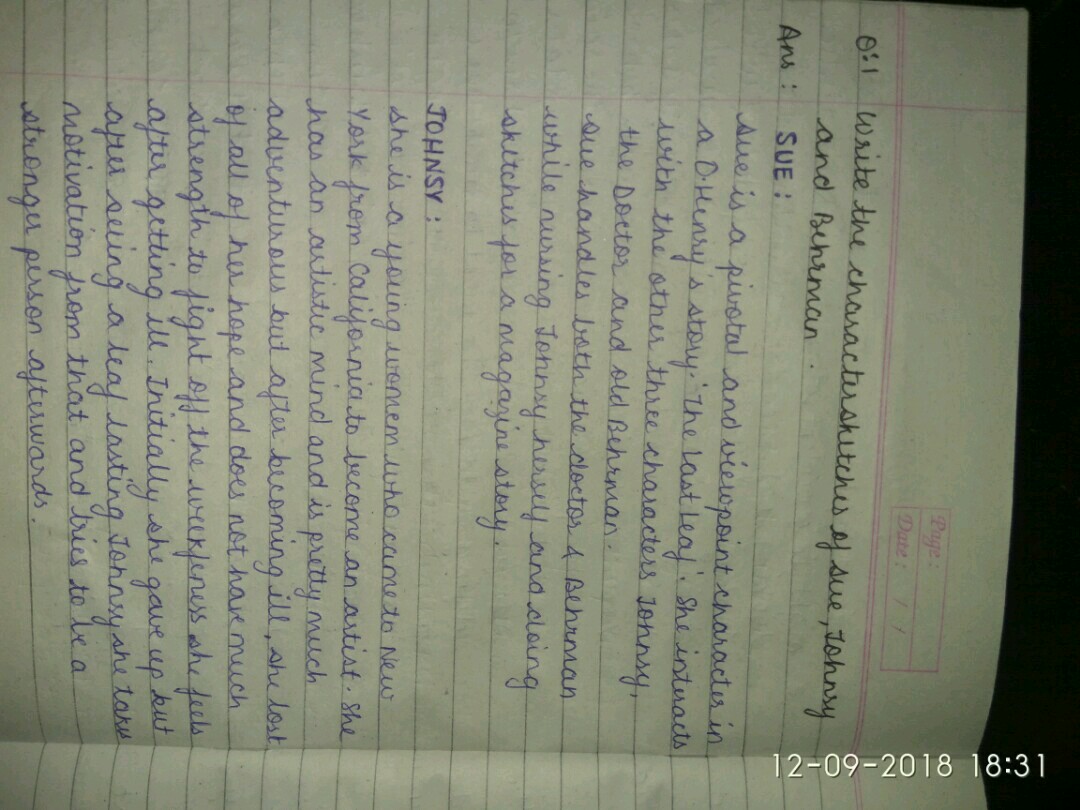 Page:
Date: / /
12-09-2018 18:31
Q:1 Write the charactersketches of Sue, Johnsy
and Behrman.
Ans: SUE:
Sue is a pivotal and viewpoint character in
a O.Henry's story. 'The Last Leaf'. She interacts
with the other three characters Johnsy,
the Doctor and old Behrman.
Sue handles both the doctor & Behrman
while nursing Johnsy herself and doing
sketches for a magazine story.
JOHNSY:
She is a young women who came to New
York from California to become an artist. She
has an artistic mind and is pretty much
adventurous but after becoming ill, she lost
of all of her hope and does not have much
strength to fight off the weekfeness she feels
after getting ill. Initially she gave up but
after seeing a leaf lasting Johnsy she takes
motivation from that and tries to be a
stronger person afterwards.